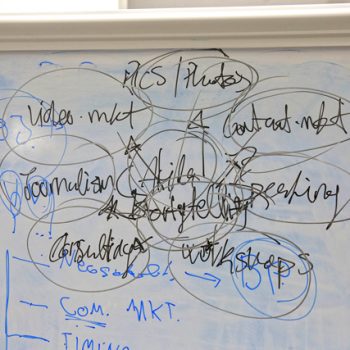 PICS/Photos
Video.mkt
Content.mkt
Journalism
Storytelling
Speaking
Consulting
Workshops
— Com. MKT.
— TIMING